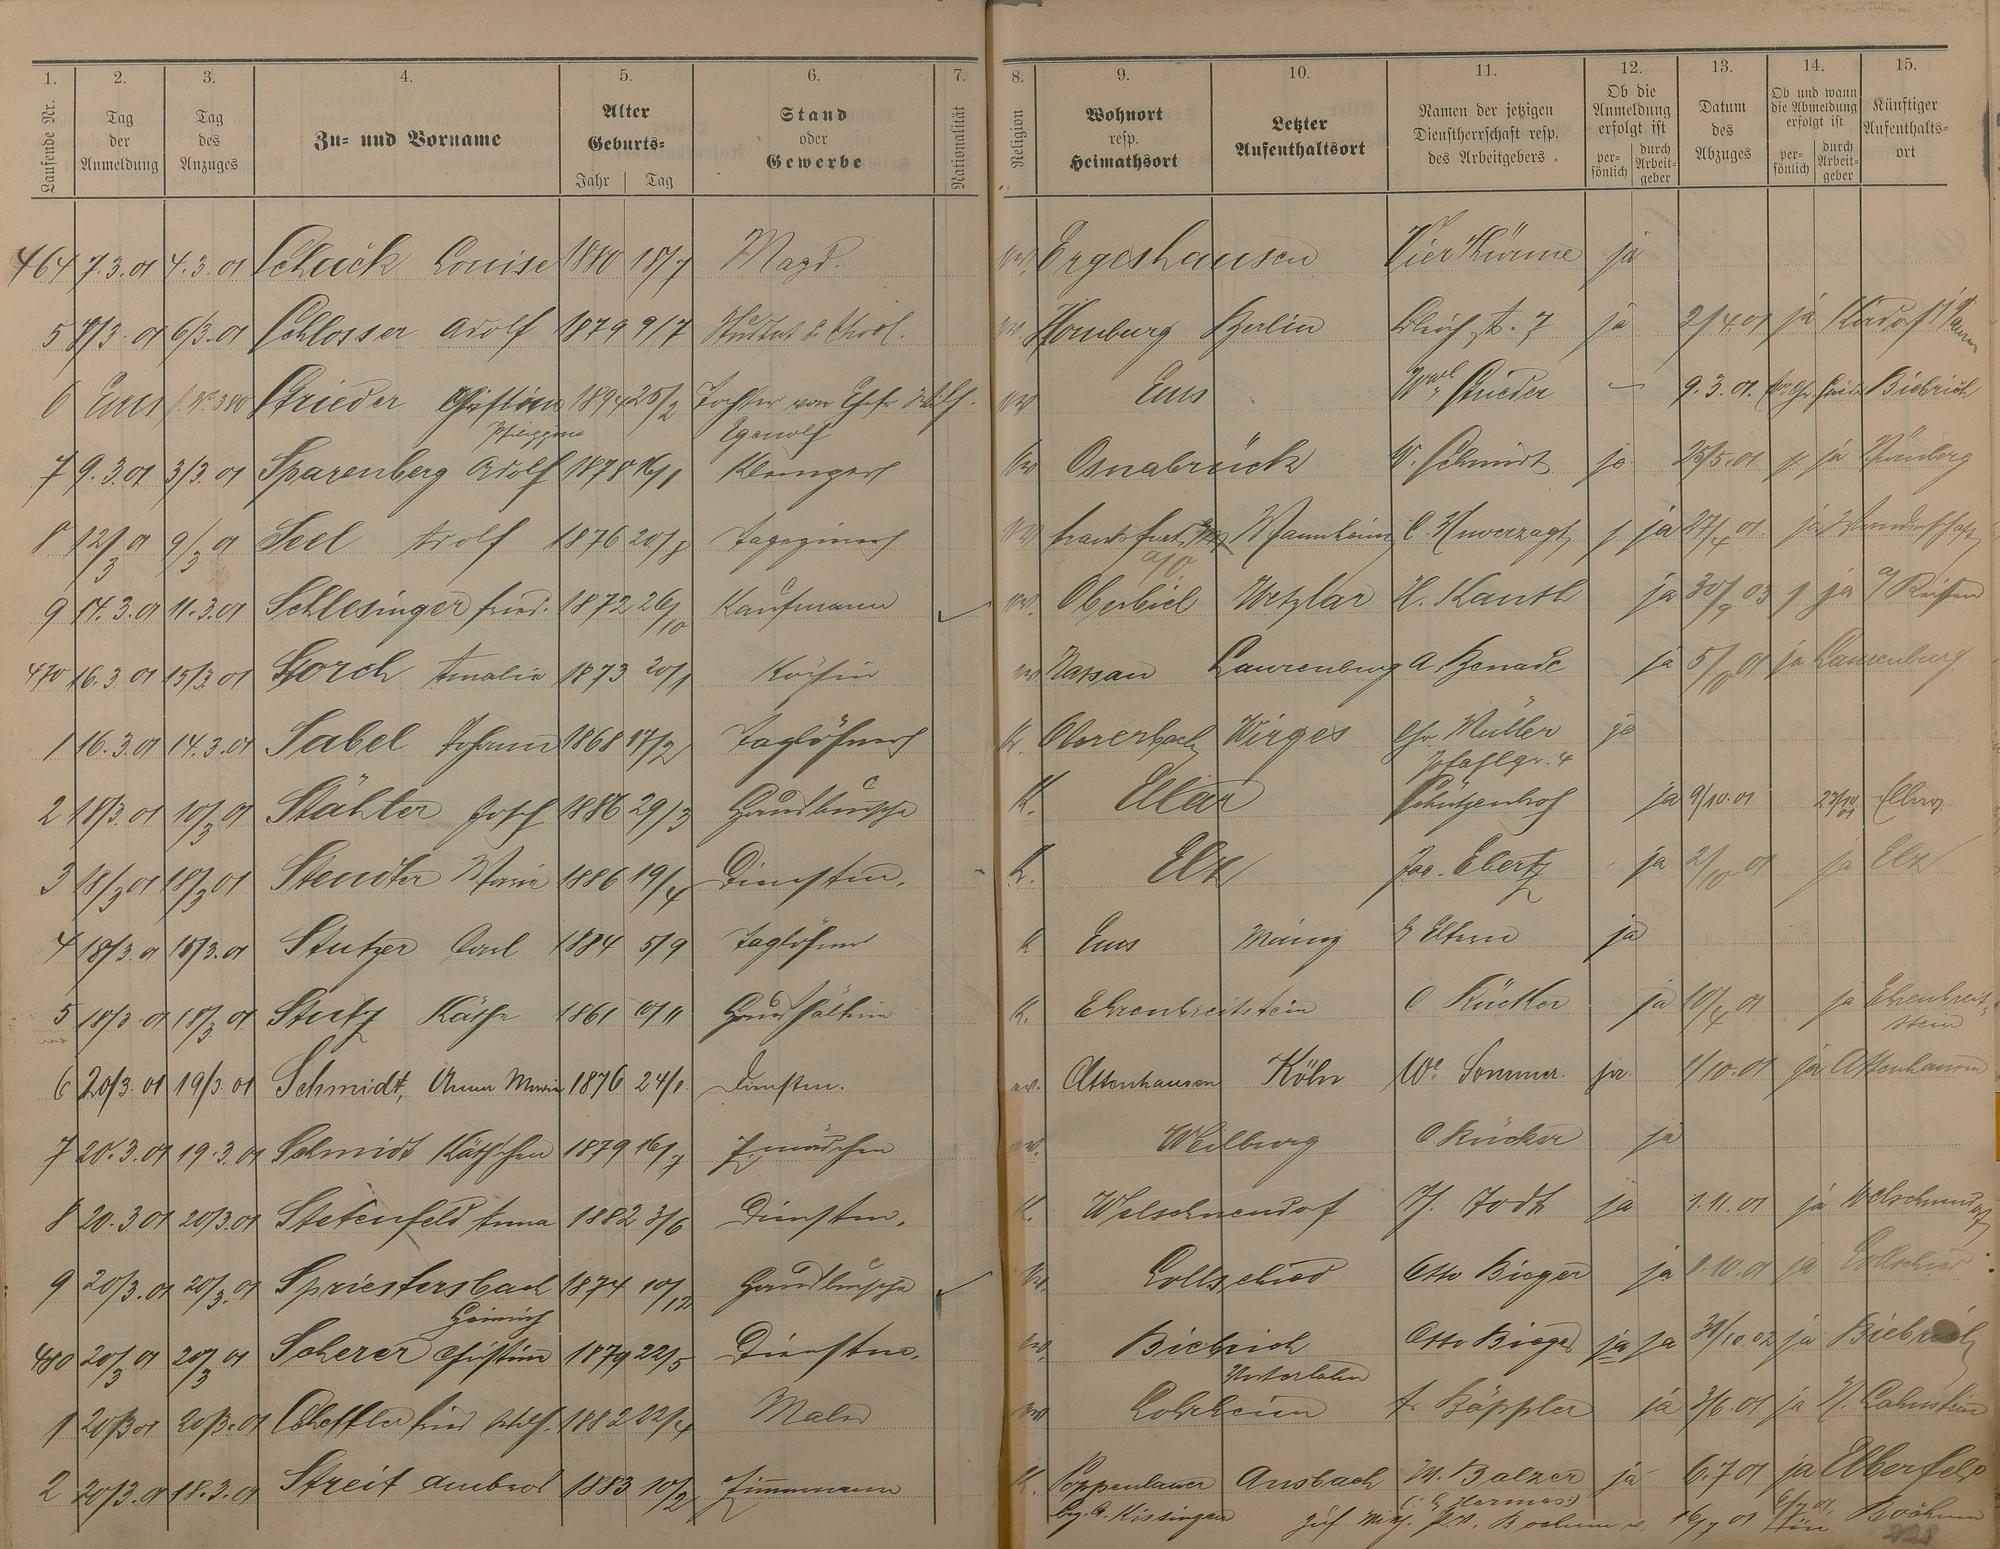 1. 2. 3. 4. 5. 6. 7. 8. 9. 10. 11. 12. 13. 14. 15.
Laufende Nr. Tag der Anmeldung Tag des Anzuges Zu- und Vorname Alter Geburts- Jahr Tag Stand oder Gewerbe Nationalität Religion Wohnort resp. Heimathsort Letzter Aufenthaltsort Namen der jetzigen Dienstherrschaft resp. des Arbeitgebers. Ob die Anmeldung erfolgt ist per- sönlich durch Arbeit- geber Datum des Abzuges Ob und wann die Abmeldung erfolgt ist per- sönlich durch Arbeit- geber Künftiger Aufenthalts- ort
464 7.3.01 4.3.01 Schuck Louise 1880 18/7 Magd. ev. Ergeshausen Vier Türme ja
5 8/3.01 6/3.01 Schlosser Adolf 1879 9/7 ev. Homburg Berlin ja 2/4.01 ja Kirdorf
6 Ems Strieder Christine 1894 25/2 Tochter von ev Ems Strieder - 9.3.01. Biebrich
Philippine Egenolf
7 9.3.01 3/3.01 Sparenberg Adolf 1878 16/1 Klempner ev Osnabrück W. Schmidt ja 25/5.01 ja Nürnberg
8 12/3 01 9/3 01 Seel Adolf 1876 20/8 Tagezinner ev Frankfurt Mannheim C. Unverzagt ja 27/4 01. ja Wanderschaft
a/O
9 14.3.01 11.3.01 Schlesinger Fried. 1872 26/10 Kaufmann ev. Oberbiel Wetzlar H. Kauth ja 30/9 03 ja a/ Reisen
470 16.3.01 15/3.01 Storch Amalie 1873 20/1 Köchin ev Nassau Laurenburg A. Benade ja 5/10 01 ja Laurenburg
1 16.3.01 14.3.01 Sabel Johann 1868 17/2 Taglöhner K. Obererbach Wirges Chr. Müller ja
Pfahlgr. 4
2 18/3.01 10/3 01 Stähler Josef 1886 29/3 Hausbursche K. Ellar Schützenhof ja 9/10.01 23/10 01 Ellar
3 18/3 01 18/3 01 Stendter Maria 1886 19/4 Dienstm. K. Elz Jac. Ebertz ja 2/10 01 ja Elz
4 18/3.01 15/3.01 Stutzer Carl 1884 5/9 Taglöhner K Ems Mainz b/ Eltern ja
5 18/3 01 18/3 01 Stutz Käthe 1861 10/11 Haushälterin K. Ehrenbreitstein O Rücker ja 10/4 01 ja Ehrenbreit-
stein
6 20/3.01 19/3.01 Schmidt, Anna Maria 1876 24/1. Dienstm. ev. Attenhausen Köln We. Sommer. ja. 1/10.01 ja Attenhausen
7 20.3.01 19.3.01 Schmidt Käthchen 1879 16/7 Z.mädchen ev. Weilburg O. Rücker ja
8 20.3.01 20/3.01 Stetenfeld Anna 1882 3/6 Dienstm. K. Welschneudorf Jodt ja 1.11.01 ja Welschneudorf
9 20/3.01 20/3.01 Spriestersbach 1874 10/12 Hausbursche ev. Lollschied Otto Bieger ja 8.10.01 ja Lollschied
Heinrich
480 20/3 01 20/3 01 Scherer Christine 1879 22/5 Dienstm. ev. Biebrich Otto Bieger ja ja 31/10.02 ja Biebrich
Unterlahn
1 20/3 01 20/3.01 Scheffler Fried Wilh. 1882 22/4 Maler ev Lohrheim A. Käppler ja 3/6.01 ja N. Lahnstein
2 20/3.01 18.3.01 Streit Ambros 1883 10/2 Zimmermann K. Poppenlauer Ansbach M. Balzer ja 6.7 01 ja Elberfeld
Bz. A. Kissingen zuf. Mitt. P.V. Bochum v. 16/7 01 Bochum